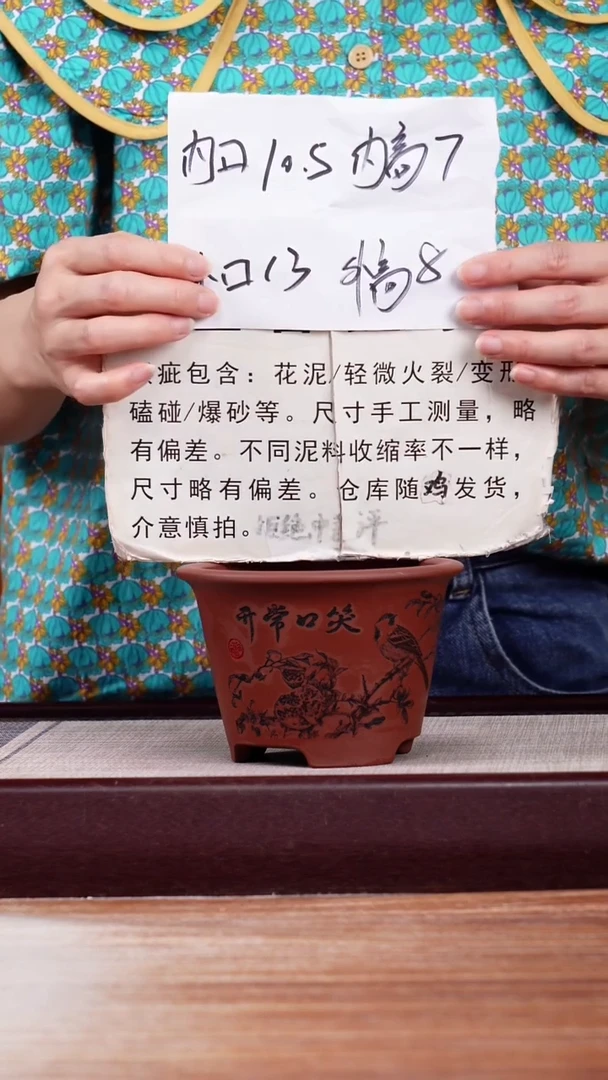 内口10.5 内高7
口13 外高8
疵包含：花泥/轻微火裂/变形
磕碰/爆砂等。尺寸手工测量，略
有偏差。不同泥料收缩率不一样，
尺寸略有偏差。仓库随鸡发货，
介意慎拍。拒绝中
开常口笑